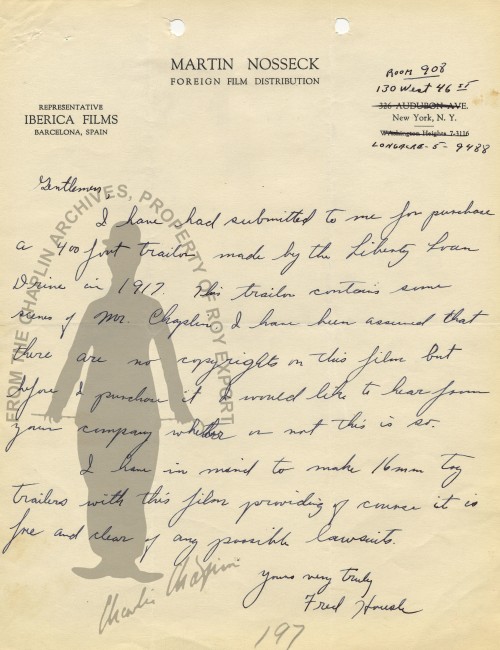 MARTIN NOSSECK
FOREIGN FILM DISTRIBUTION
REPRESENTATIVE
IBERICA FILMS
BARCELONA, SPAIN
Room 908
130 West 46 ST
386 AUDUBON AVE.
New York, N. Y.
WAshington Heights 7-3116
LONGACRE-5-9488
Gentlemen,
I have had submitted to me for purchase
a 400 foot trailor made by the Liberty Loan
Drive in 1917. This trailor contains some
scenes of Mr. Chaplin. I have been assured that
there are no copyrights on this film but
before I purchase it I would like to hear from
your company whether or not this is so.
I have in mind to make 16mm toy
trailers with this film providing of course it is
free and clear of any possible lawsuits.
Yours very truly
Fred
197
FROM THE CHAPLIN ARCHIVES, PROPERTY OF ROY EXPORT
Charlie Chaplin